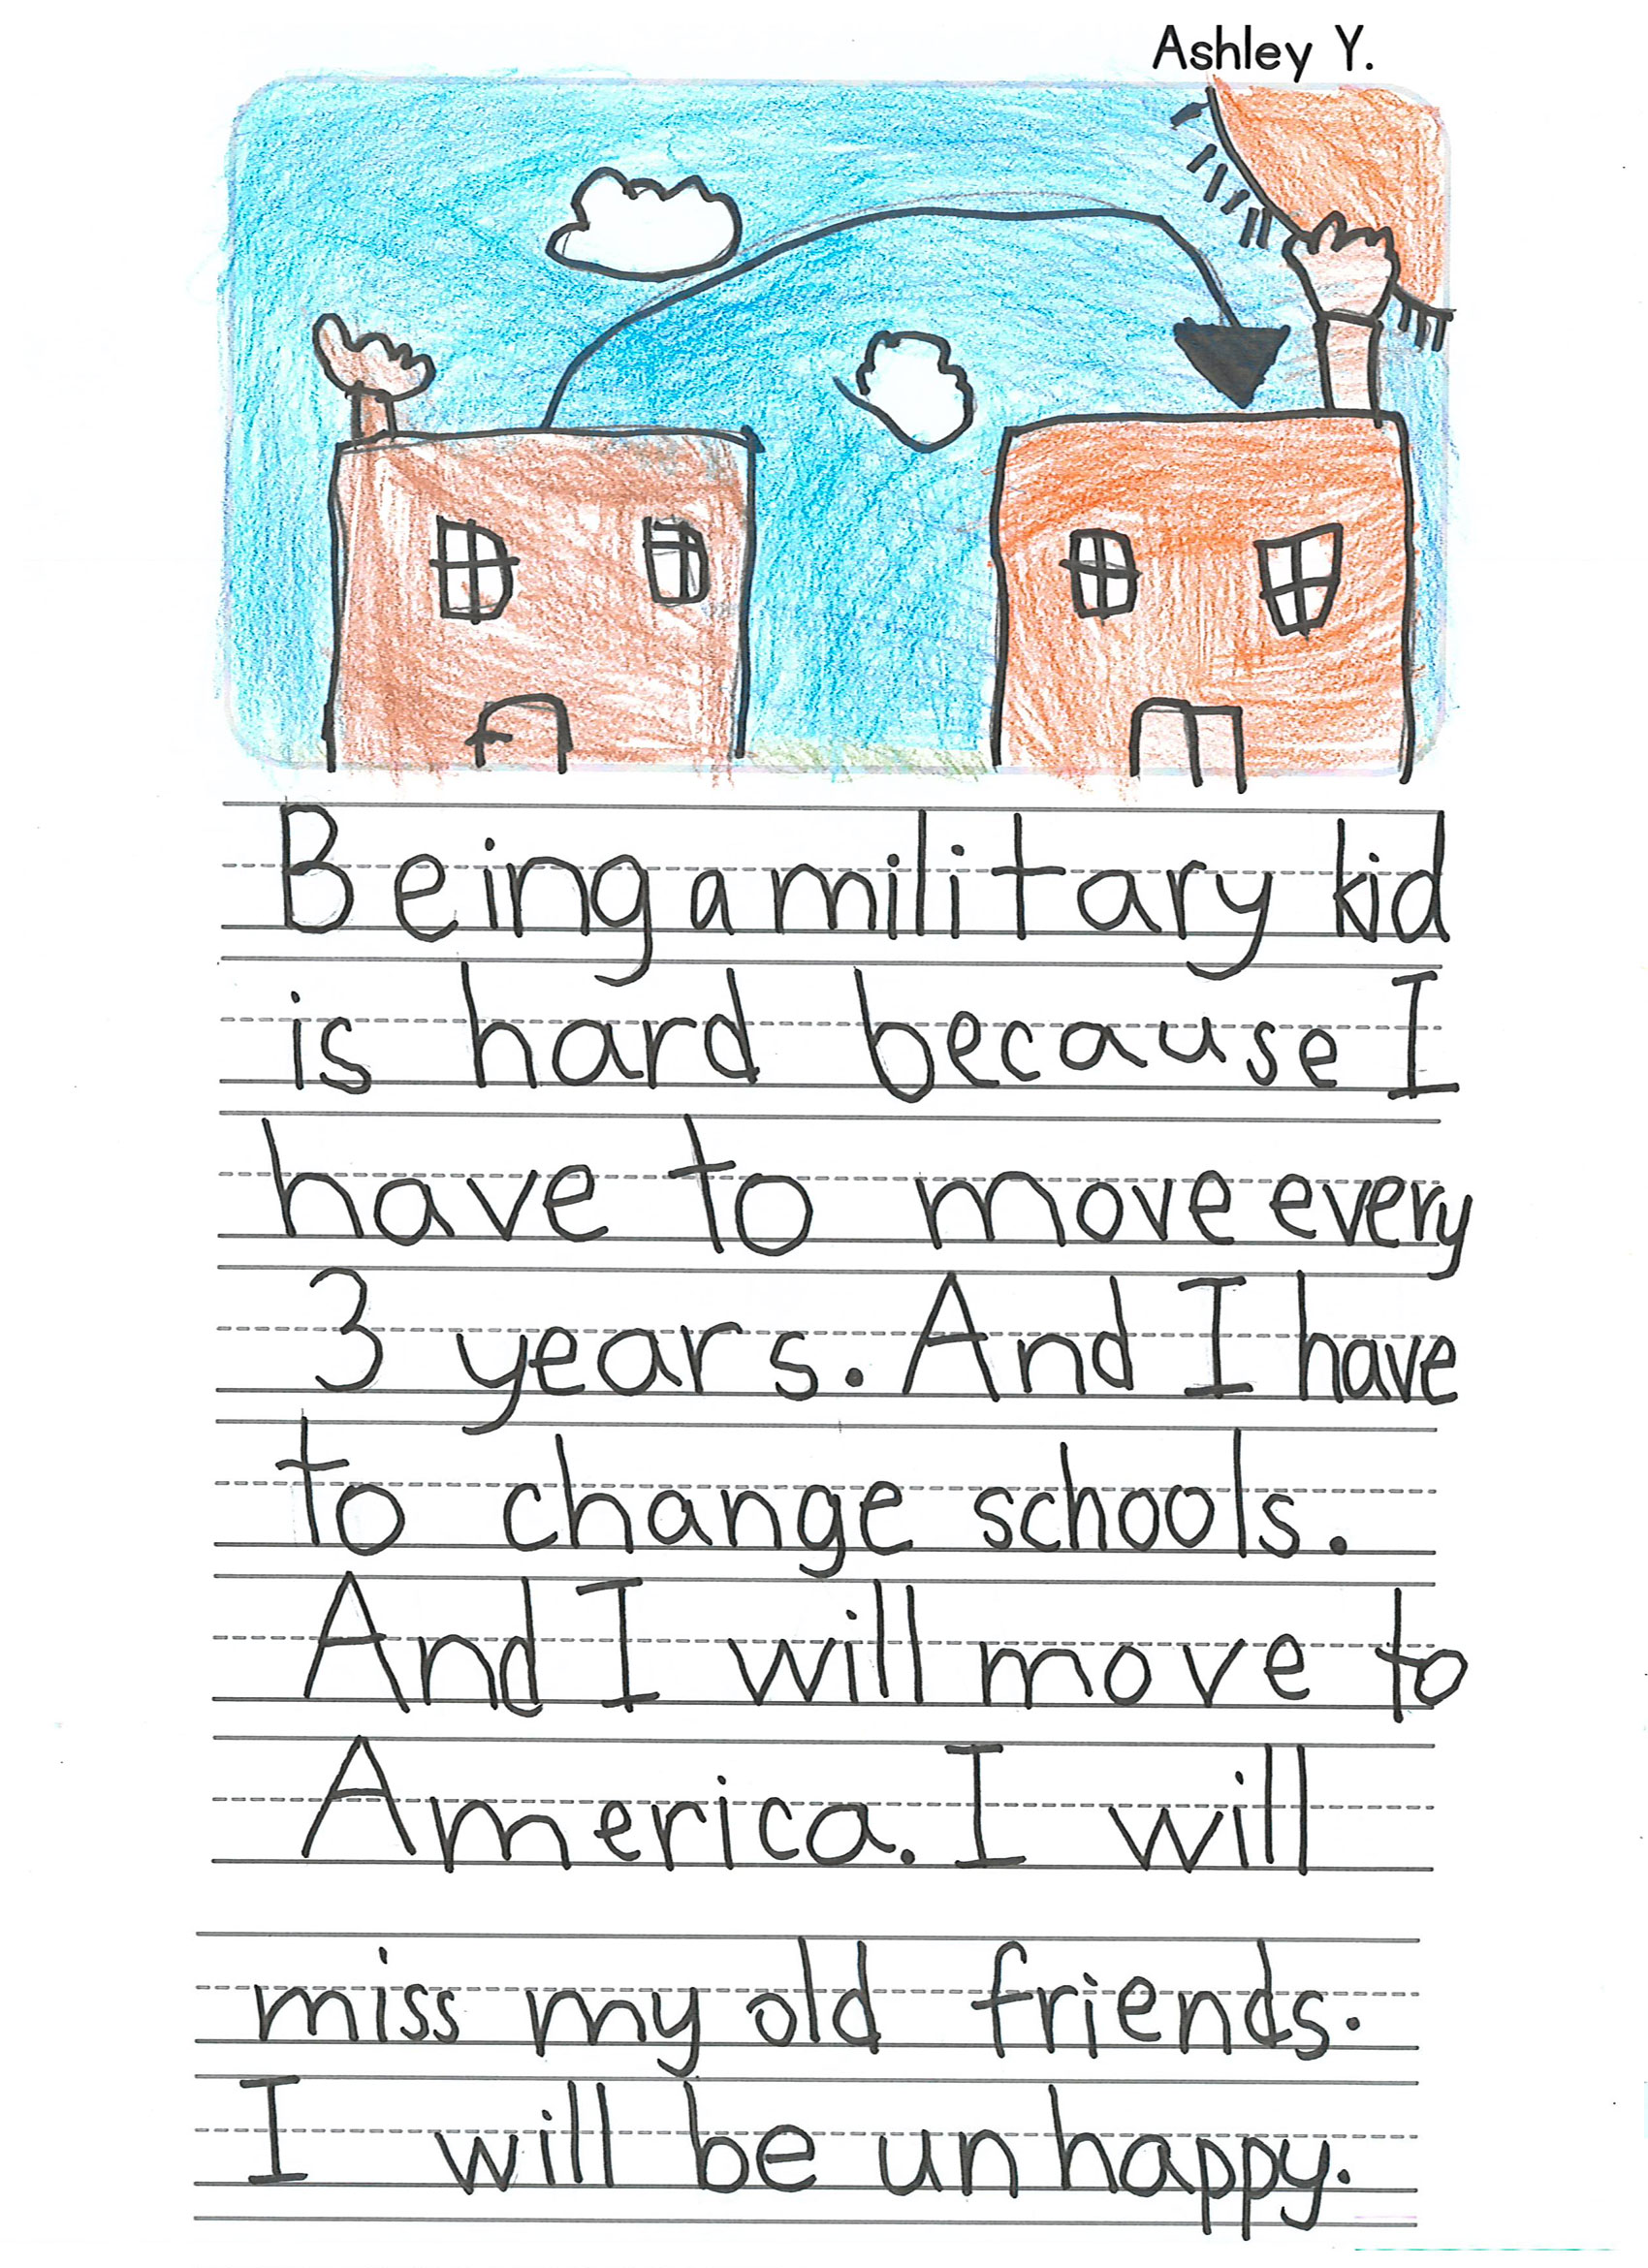 Ashley Y.
Being a military kid
is hard because I
have to move every
3 years. And I have
to change schools.
And I will move to
America. I will
miss my old friends.
I will be unhappy.